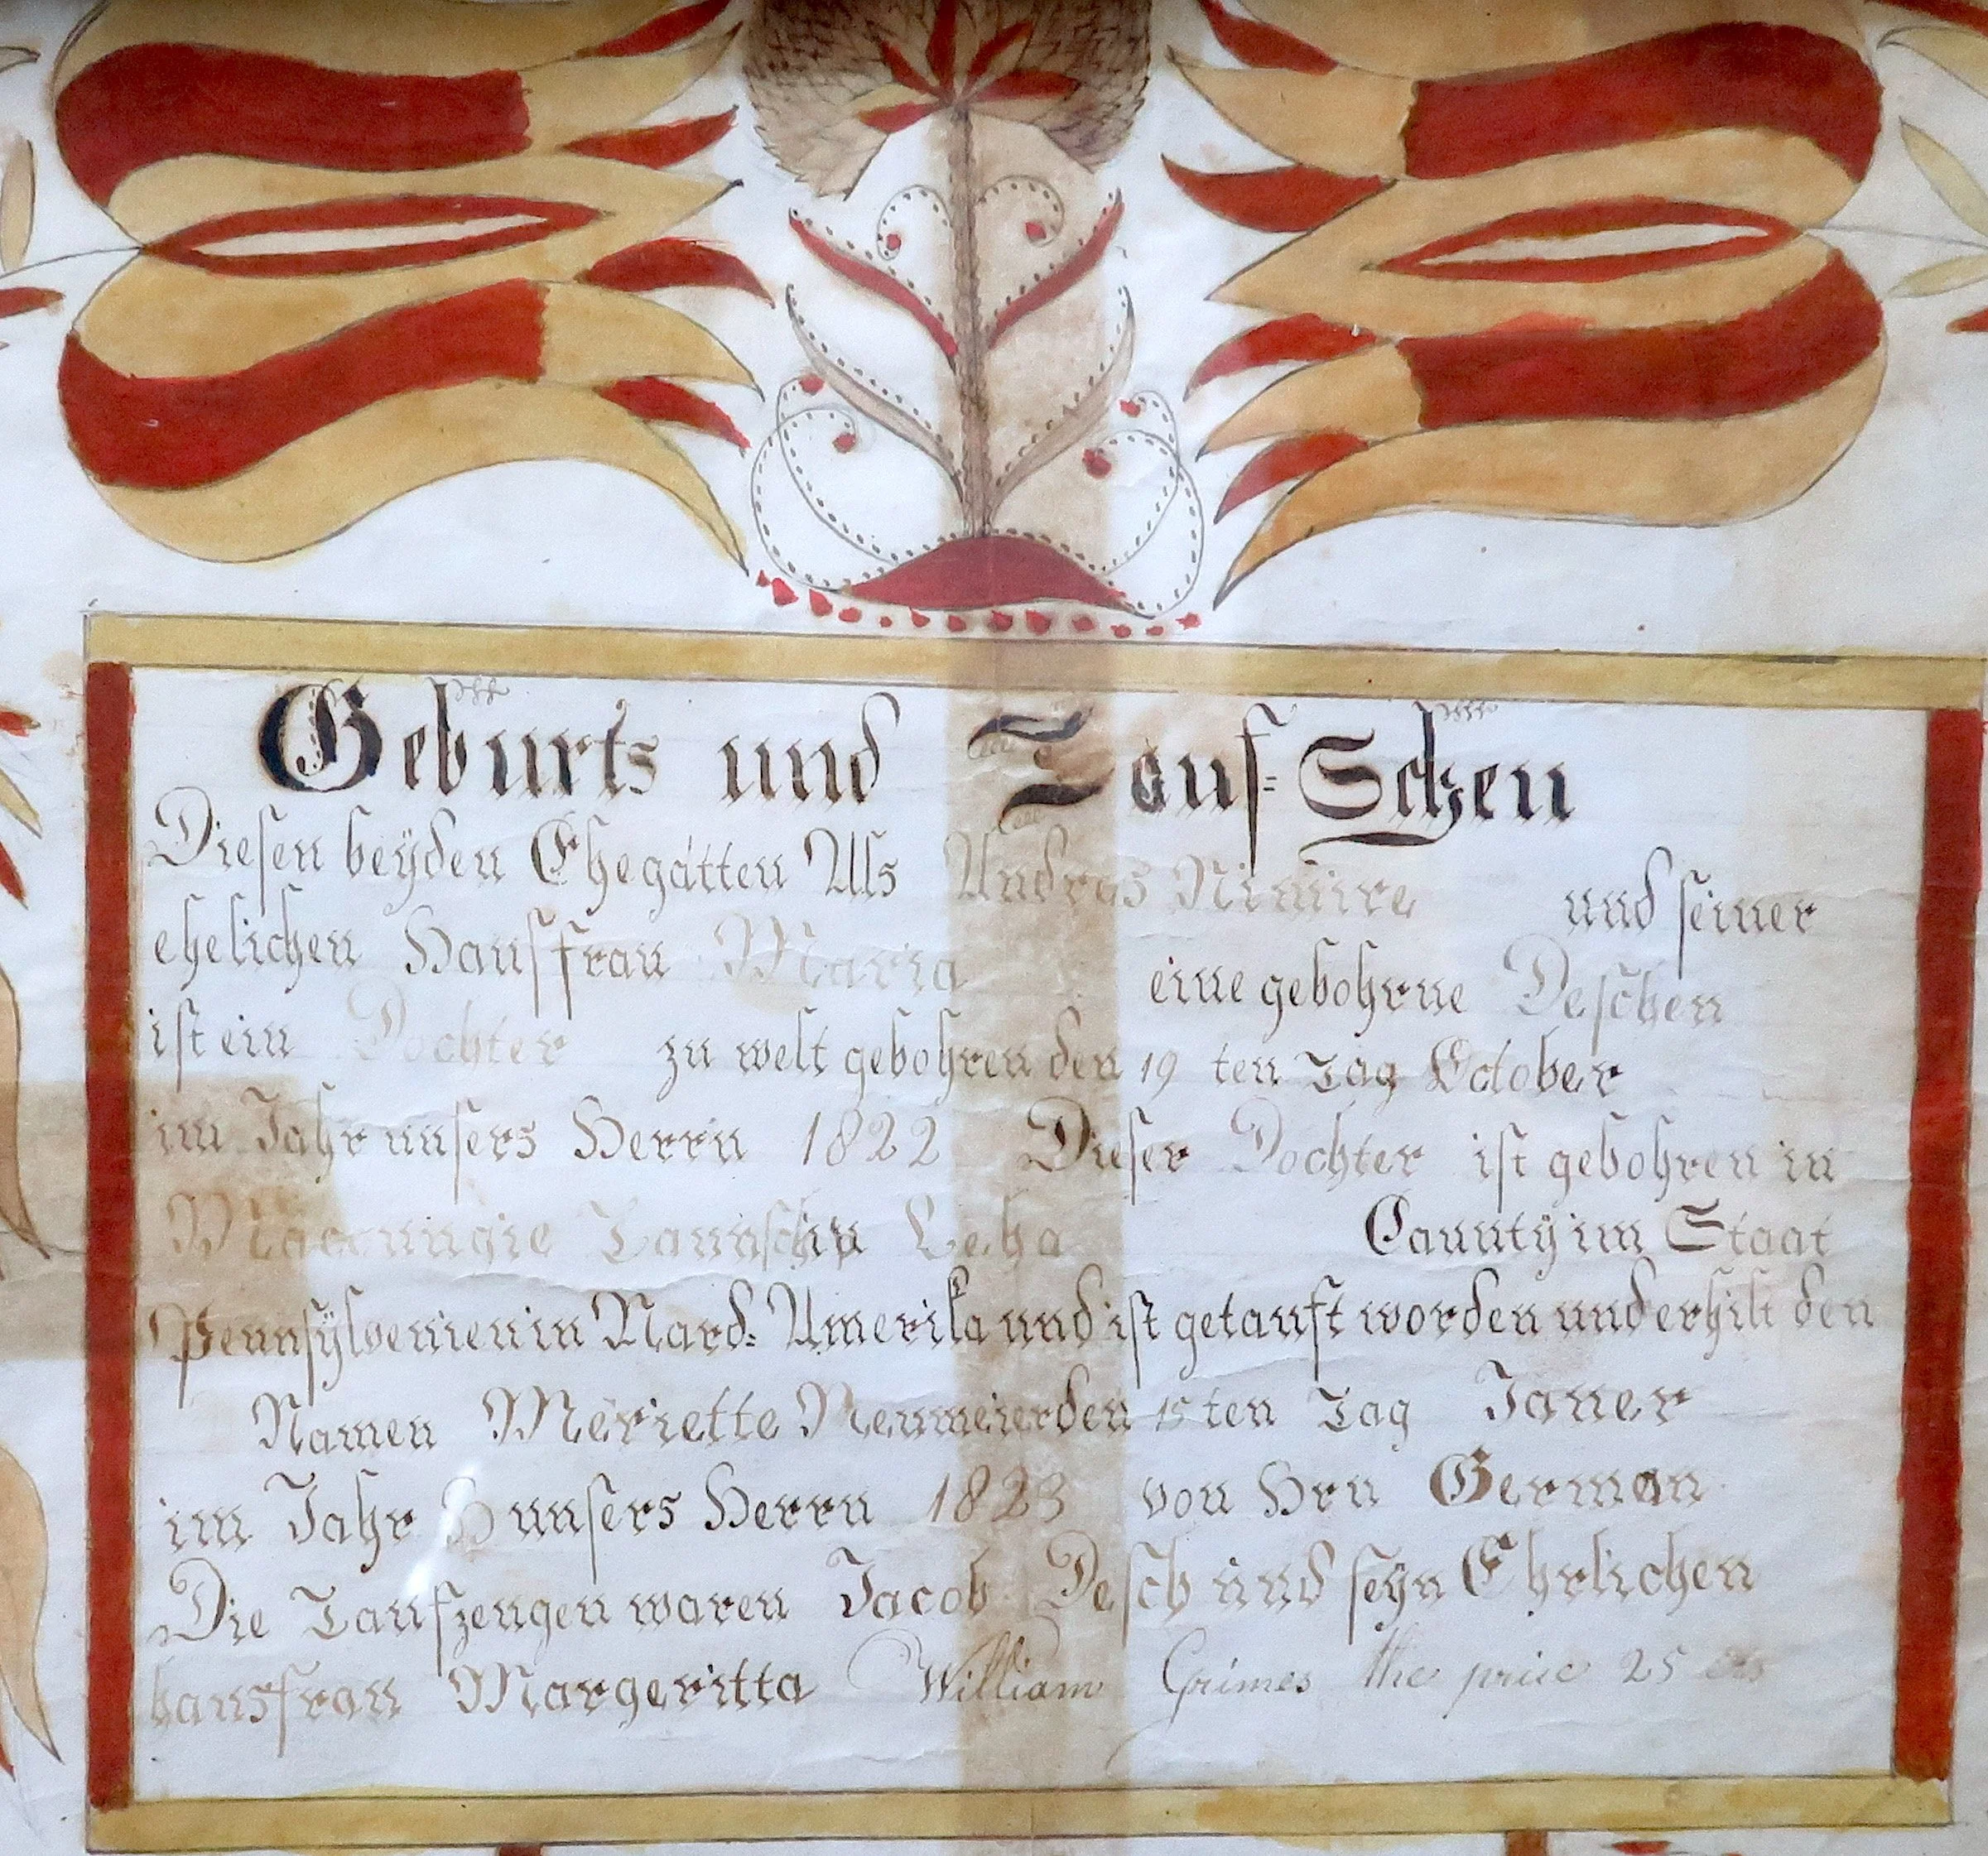 Geburts und Tauf=Schen
Diesen beyden Ehegatten Als Andras Nimire und seiner
ehelichen Hausffrau Maria eine gebohrne Deschen
ist ein Dochter zu welt gebohren den 19 ten Tag October
im Jahr unsers Herrn 1822 Dieser Dochter ist gebohren in
Macoungie Taunschip Lecha Caunty im Staat
Pennsylvenien in Nard=Amerika und ist getauft worden und erhilt den
Namen Meriette Neumeier den 15 ten Tag Janer
im Jahr unsers Herrn 1823 von Hrn German
Die Taufzeugen waren Jacob Desch und seyn Ehrlichen
hausfrau Margeritta William Grimes the price 25 cts